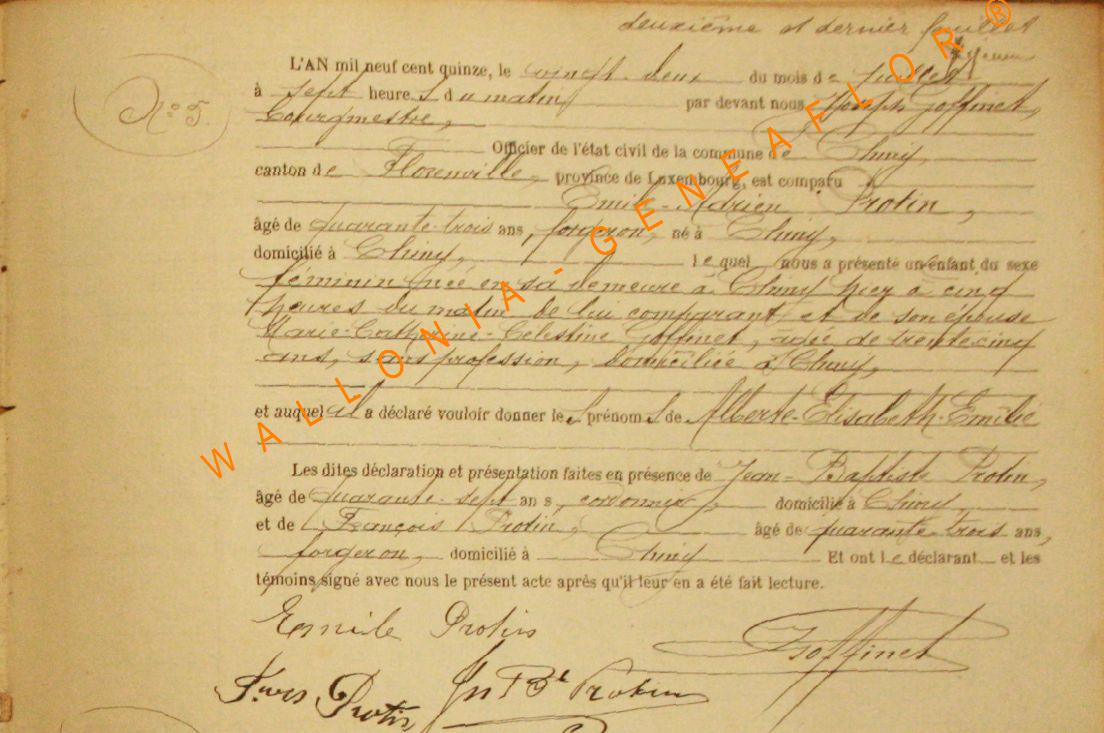 deuxième et dernier feuillet
No 5.
L'AN mil neuf cent quinze, le vingt-deux du mois de juillet
à sept heures du matin par devant nous Joseph Goffinet,
bourgmestre,
Officier de l'état civil de la commune de Chiny,
canton de Florenville, province de Luxembourg, est comparu
Emile-Adrien Protin,
âgé de quarante-trois ans, forgeron, né à Chiny,
domicilié à Chiny, lequel nous a présenté un enfant du sexe
féminin née en sa demeure à Chiny hier à cinq
heures du matin de lui comparant et de son épouse
Marie-Catherine-Celestine Goffinet, agée de trente cinq
ans, sans profession, domiciliée à Chiny,
et auquel il a déclaré vouloir donner les prénoms de Alberte-Elisabeth-Emilie
Les dites déclaration et présentation faites en présence de Jean-Baptiste Protin,
âgé de quarante-sept ans, cordonnier, domicilié à Chiny,
et de François Protin, âgé de quarante-trois ans,
forgeron, domicilié à Chiny Et ont le déclarant et les
témoins signé avec nous le présent acte après qu'il leur en a été fait lecture.
Emile Protin
Goffinet
Jn Bte Protin
Protin
WALLONIA-GENEAFLOR®